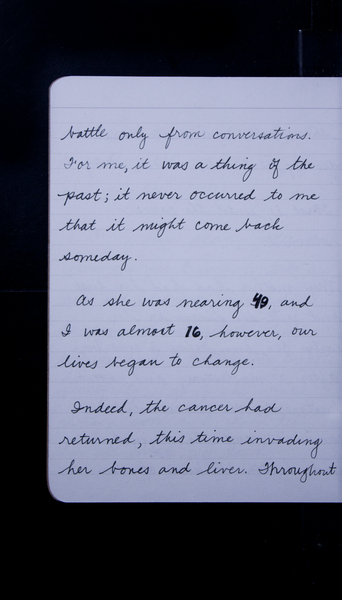 battle only from conversations.
For me, it was a thing of the
past; it never occurred to me
that it might come back
someday.
As she was nearing 49, and
I was almost 16, however, our
lives began to change.
Indeed, the cancer had
returned, this time invading
her bones and liver. Throughout